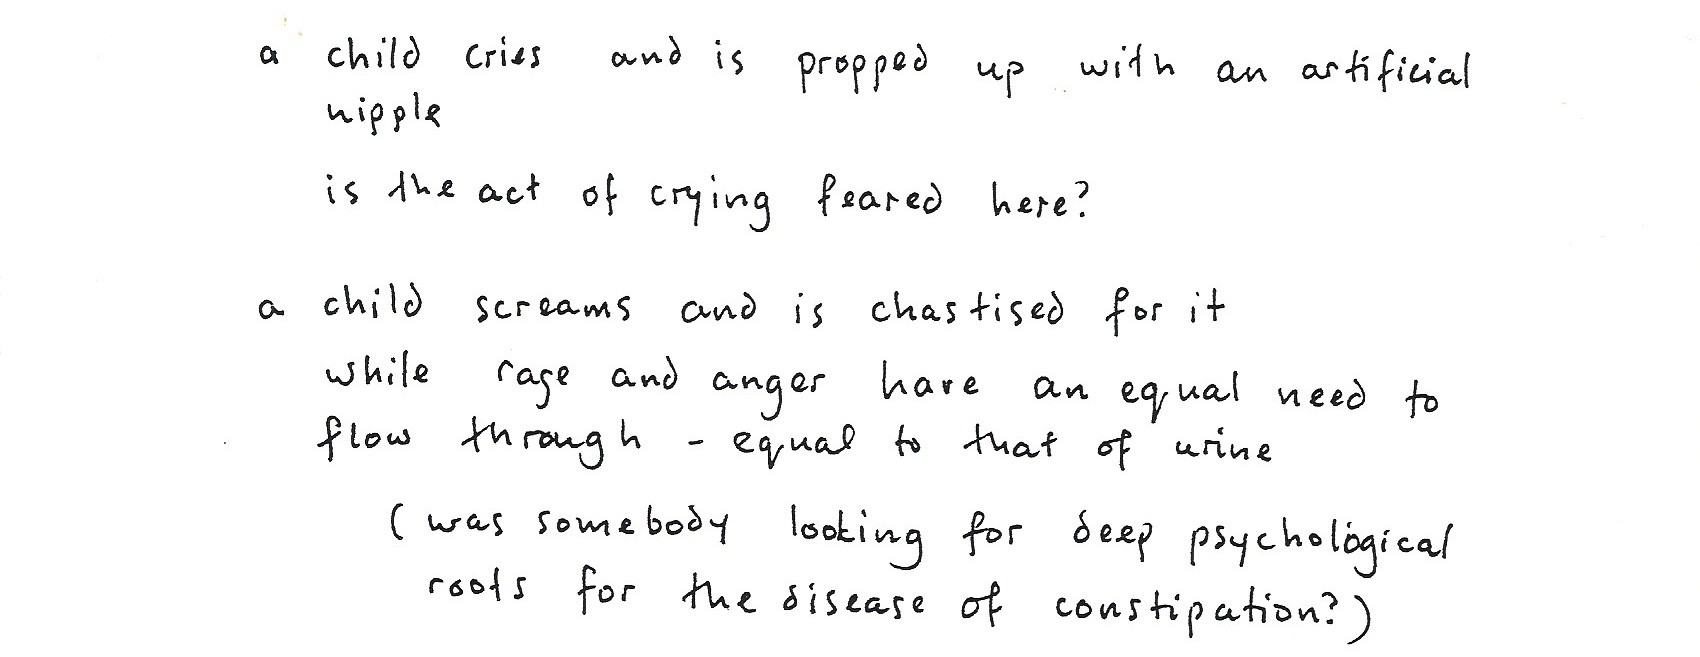 a child cries and is propped up with an artificial
nipple
is the act of crying feared here?
a child screams and is chastised for it
while rage and anger have an equal need to
flow through - equal to that of urine
(was somebody looking for deep psychological
roots for the disease of constipation?)